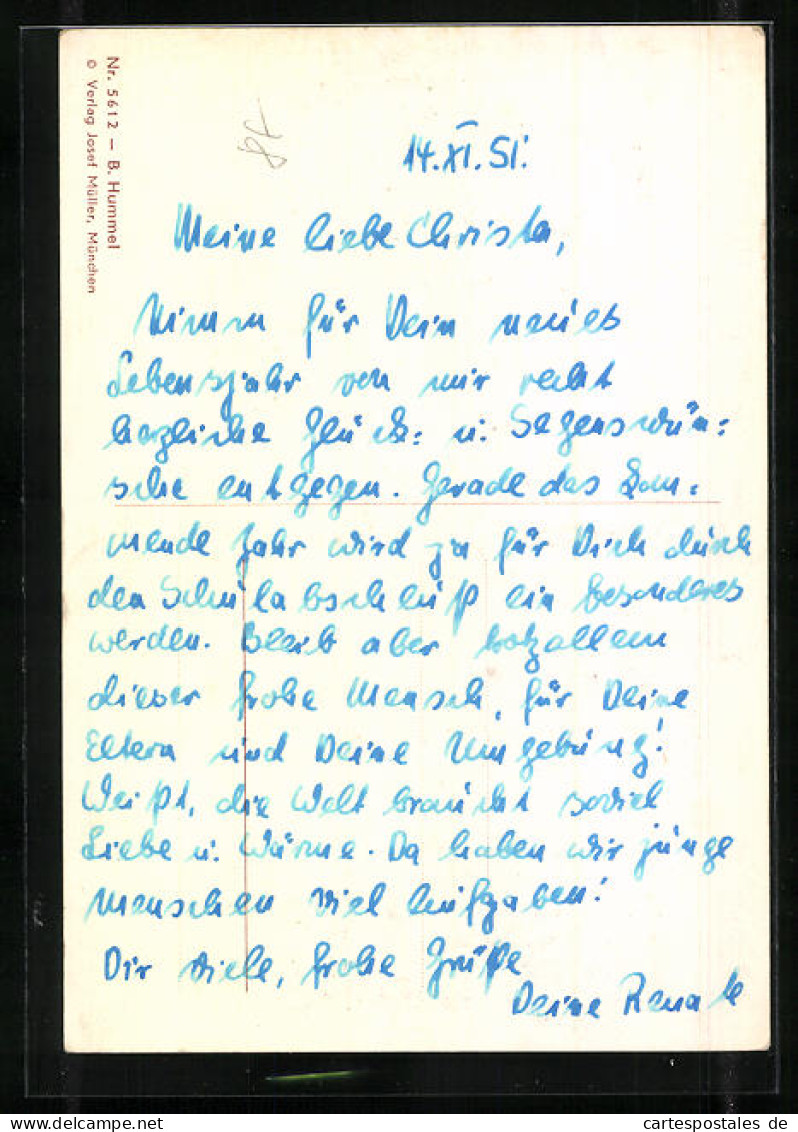 Nr. 5612 — B. Hummel
© Verlag Josef Müller, München
14.XI.51.
Meine liebe Christa,
Nimm für Dein neues
Lebensjahr von mir recht
herzliche Glück= u. Segenswün=
sche entgegen. Gerade das kom=
mende Jahr wird ja für Dich durch
den Schulabschluß ein besonderes
werden. Bleib aber trotzallem
dieser frohe Mensch, für Deine
Eltern und Deine Umgebung!
Weißt, die Welt braucht soviel
Liebe u. Wärme. Da haben wir junge
Menschen viel Aufgaben!
Dir viele, frohe Grüße
Deine Renate
www.oldthing.de
cartespostales de